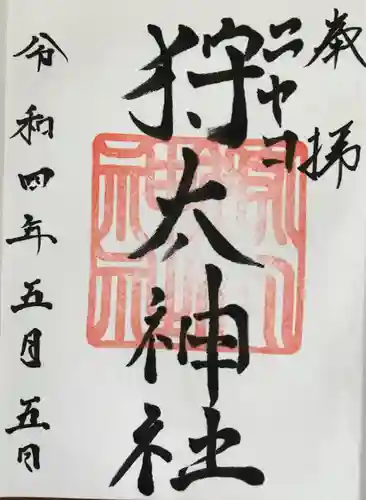 奉拝
ニセコ
狩太神社
令和四年五月五日